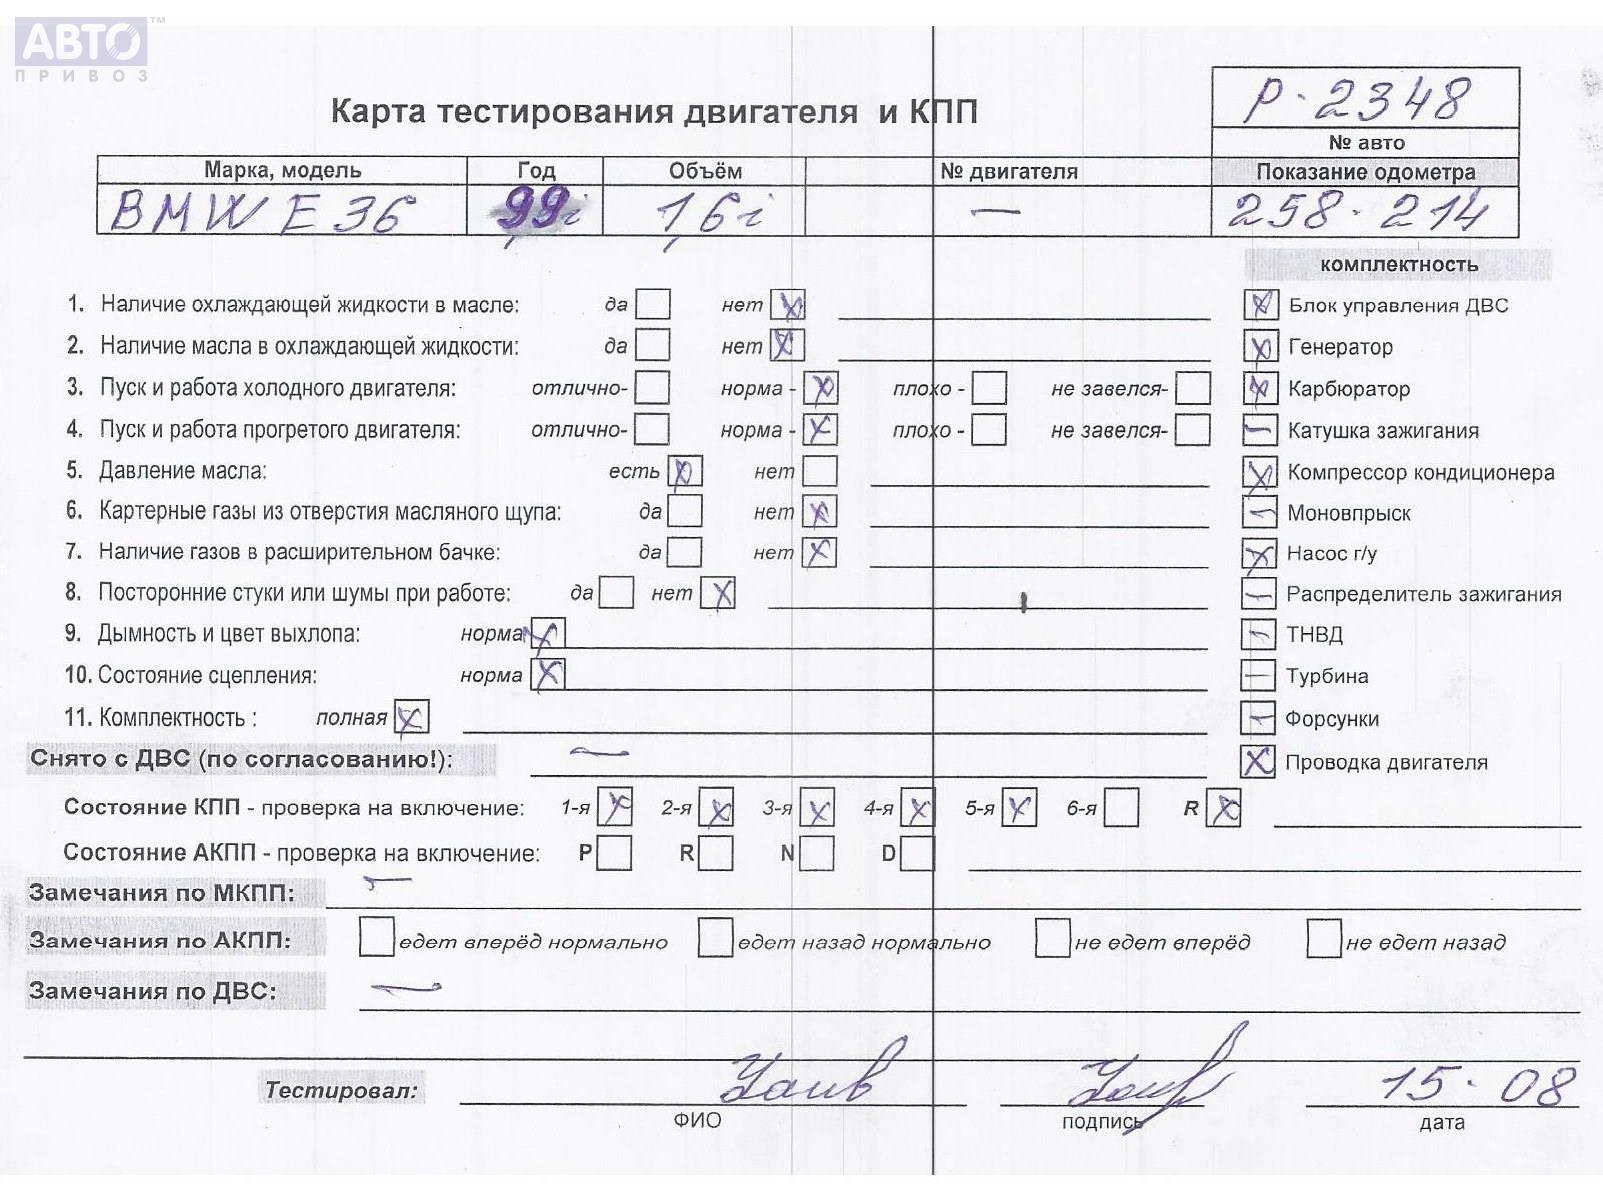 АВТО ™
ПРИВОЗ
Р-2348
Карта тестирования двигателя и КПП
№ авто
Марка, модель Год Объём № двигателя Показание одометра
BMW E36 99 1,6i — 258-214
комплектность
1. Наличие охлаждающей жидкости в масле: да нет Блок управления ДВС
2. Наличие масла в охлаждающей жидкости: да нет Генератор
3. Пуск и работа холодного двигателя: отлично- норма - плохо - не завелся- Карбюратор
4. Пуск и работа прогретого двигателя: отлично- норма - плохо - не завелся- Катушка зажигания
5. Давление масла: есть нет Компрессор кондиционера
6. Картерные газы из отверстия масляного щупа: да нет Моновпрыск
7. Наличие газов в расширительном бачке: да нет Насос г/у
8. Посторонние стуки или шумы при работе: да нет Распределитель зажигания
9. Дымность и цвет выхлопа: норма ТНВД
10. Состояние сцепления: норма Турбина
11. Комплектность : полная Форсунки
Снято с ДВС (по согласованию!): — Проводка двигателя
Состояние КПП - проверка на включение: 1-я 2-я 3-я 4-я 5-я 6-я R
Состояние АКПП - проверка на включение: P R N D
Замечания по МКПП: —
Замечания по АКПП: едет вперёд нормально едет назад нормально не едет вперёд не едет назад
Замечания по ДВС: —
Тестировал: 15-08
ФИО подпись дата